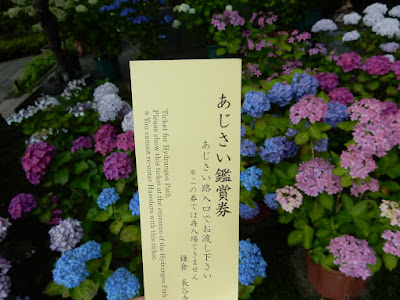 あじさい鑑賞券
あじさい路入口でお渡し下さい
＊この券では再入場できません
鎌倉 長谷寺
Ticket for Hydrangea Path.
Please show this ticket at the entrance of the Hydrangea Path.
* You cannot re-enter Hasedera with this ticket.